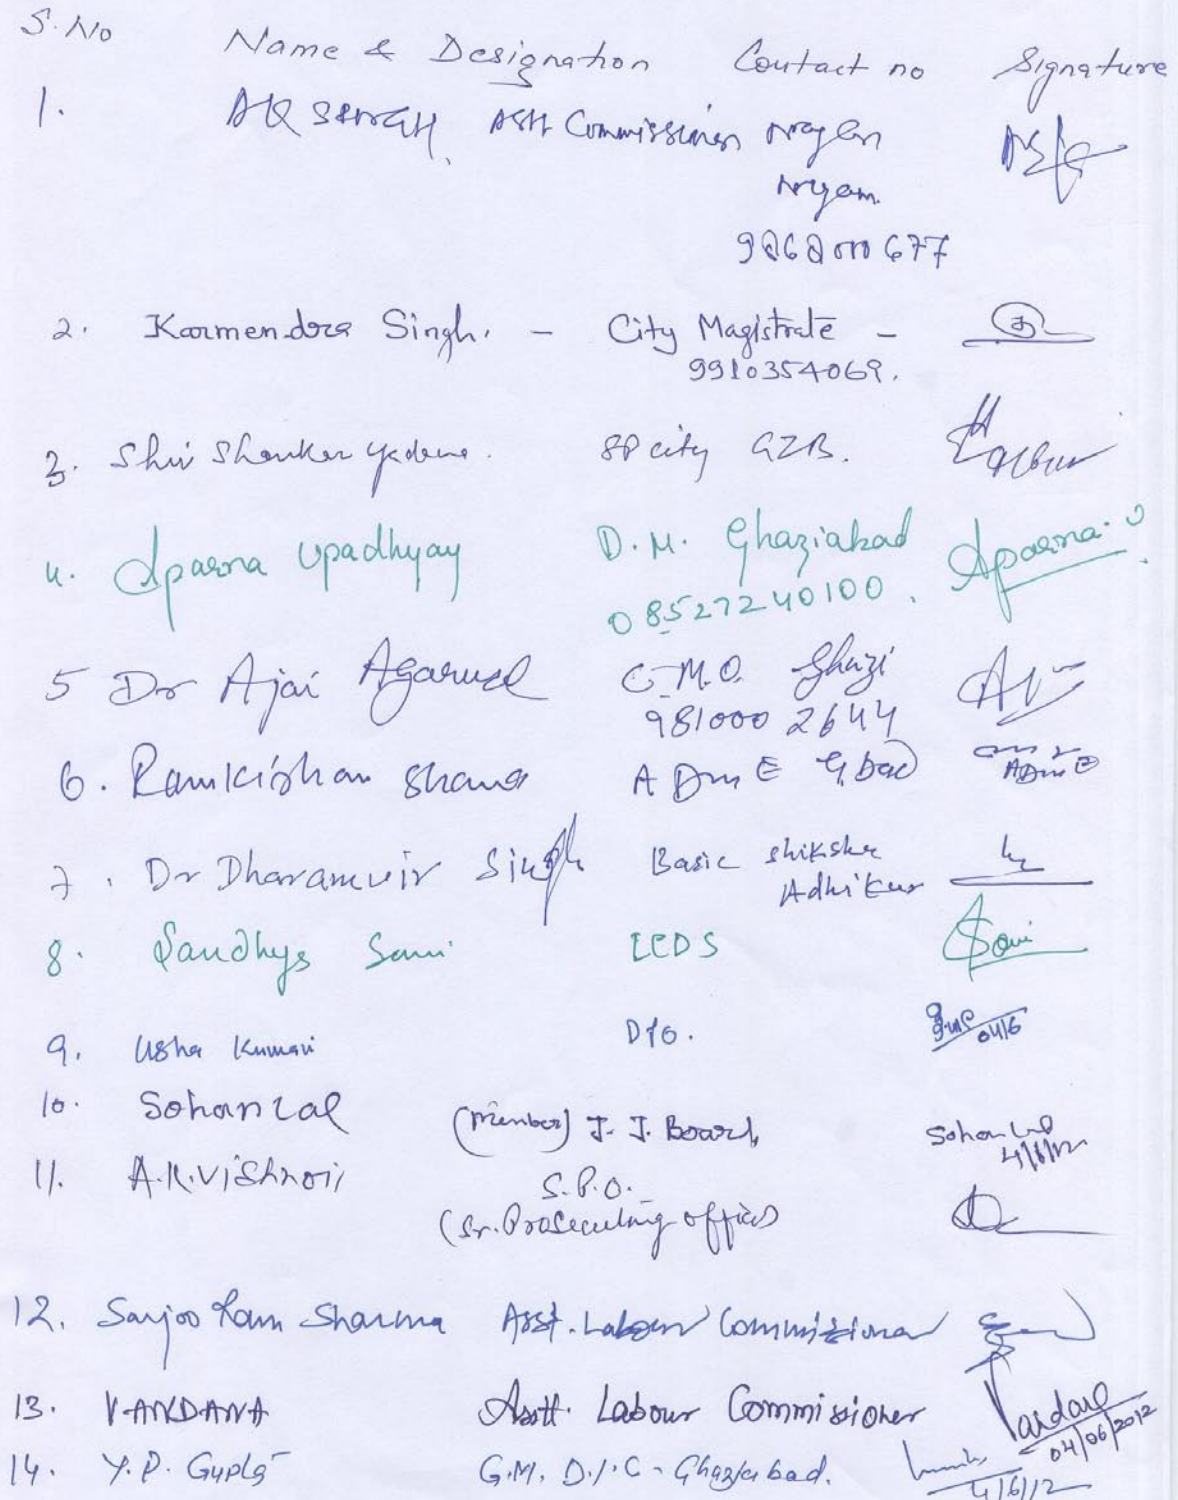 S.No Name & Designation Contact no Signature
1. AK SINGH, Asstt Commissioner Nagar
Nigam
2. Karmendra Singh. - City Magistrate -
9910354069.
3. Shiv Shanker Yadava. SP city GZB.
4. Aparna Upadhyay D.M. Ghaziabad Aparna. U
08527240100.
5 Dr Ajai Agarwal C.M.O. Ghazi
981000 2644
6. Ramkishan Sharma ADM E Gbad
ADM E
7. Dr Dharamvir Singh Basic Shiksha
Adhikari
8. Sandhya Soni ICDS Soni
9. Usha Kumari DPO. 04/6
10. Sohan Lal (Member) J. J. Board, Sohan Lal
4/6/12
11. A.K. Vishnoi S.P.O.
(Sr. Prosecuting officer)
12. Sarjoo Ram Sharma Asst. Labour Commissioner
13. VANDANA Asstt. Labour Commissioner Vandana
04/06/2012
14. Y.P. Gupta G.M. D.I.C - Ghaziabad.
4/6/12